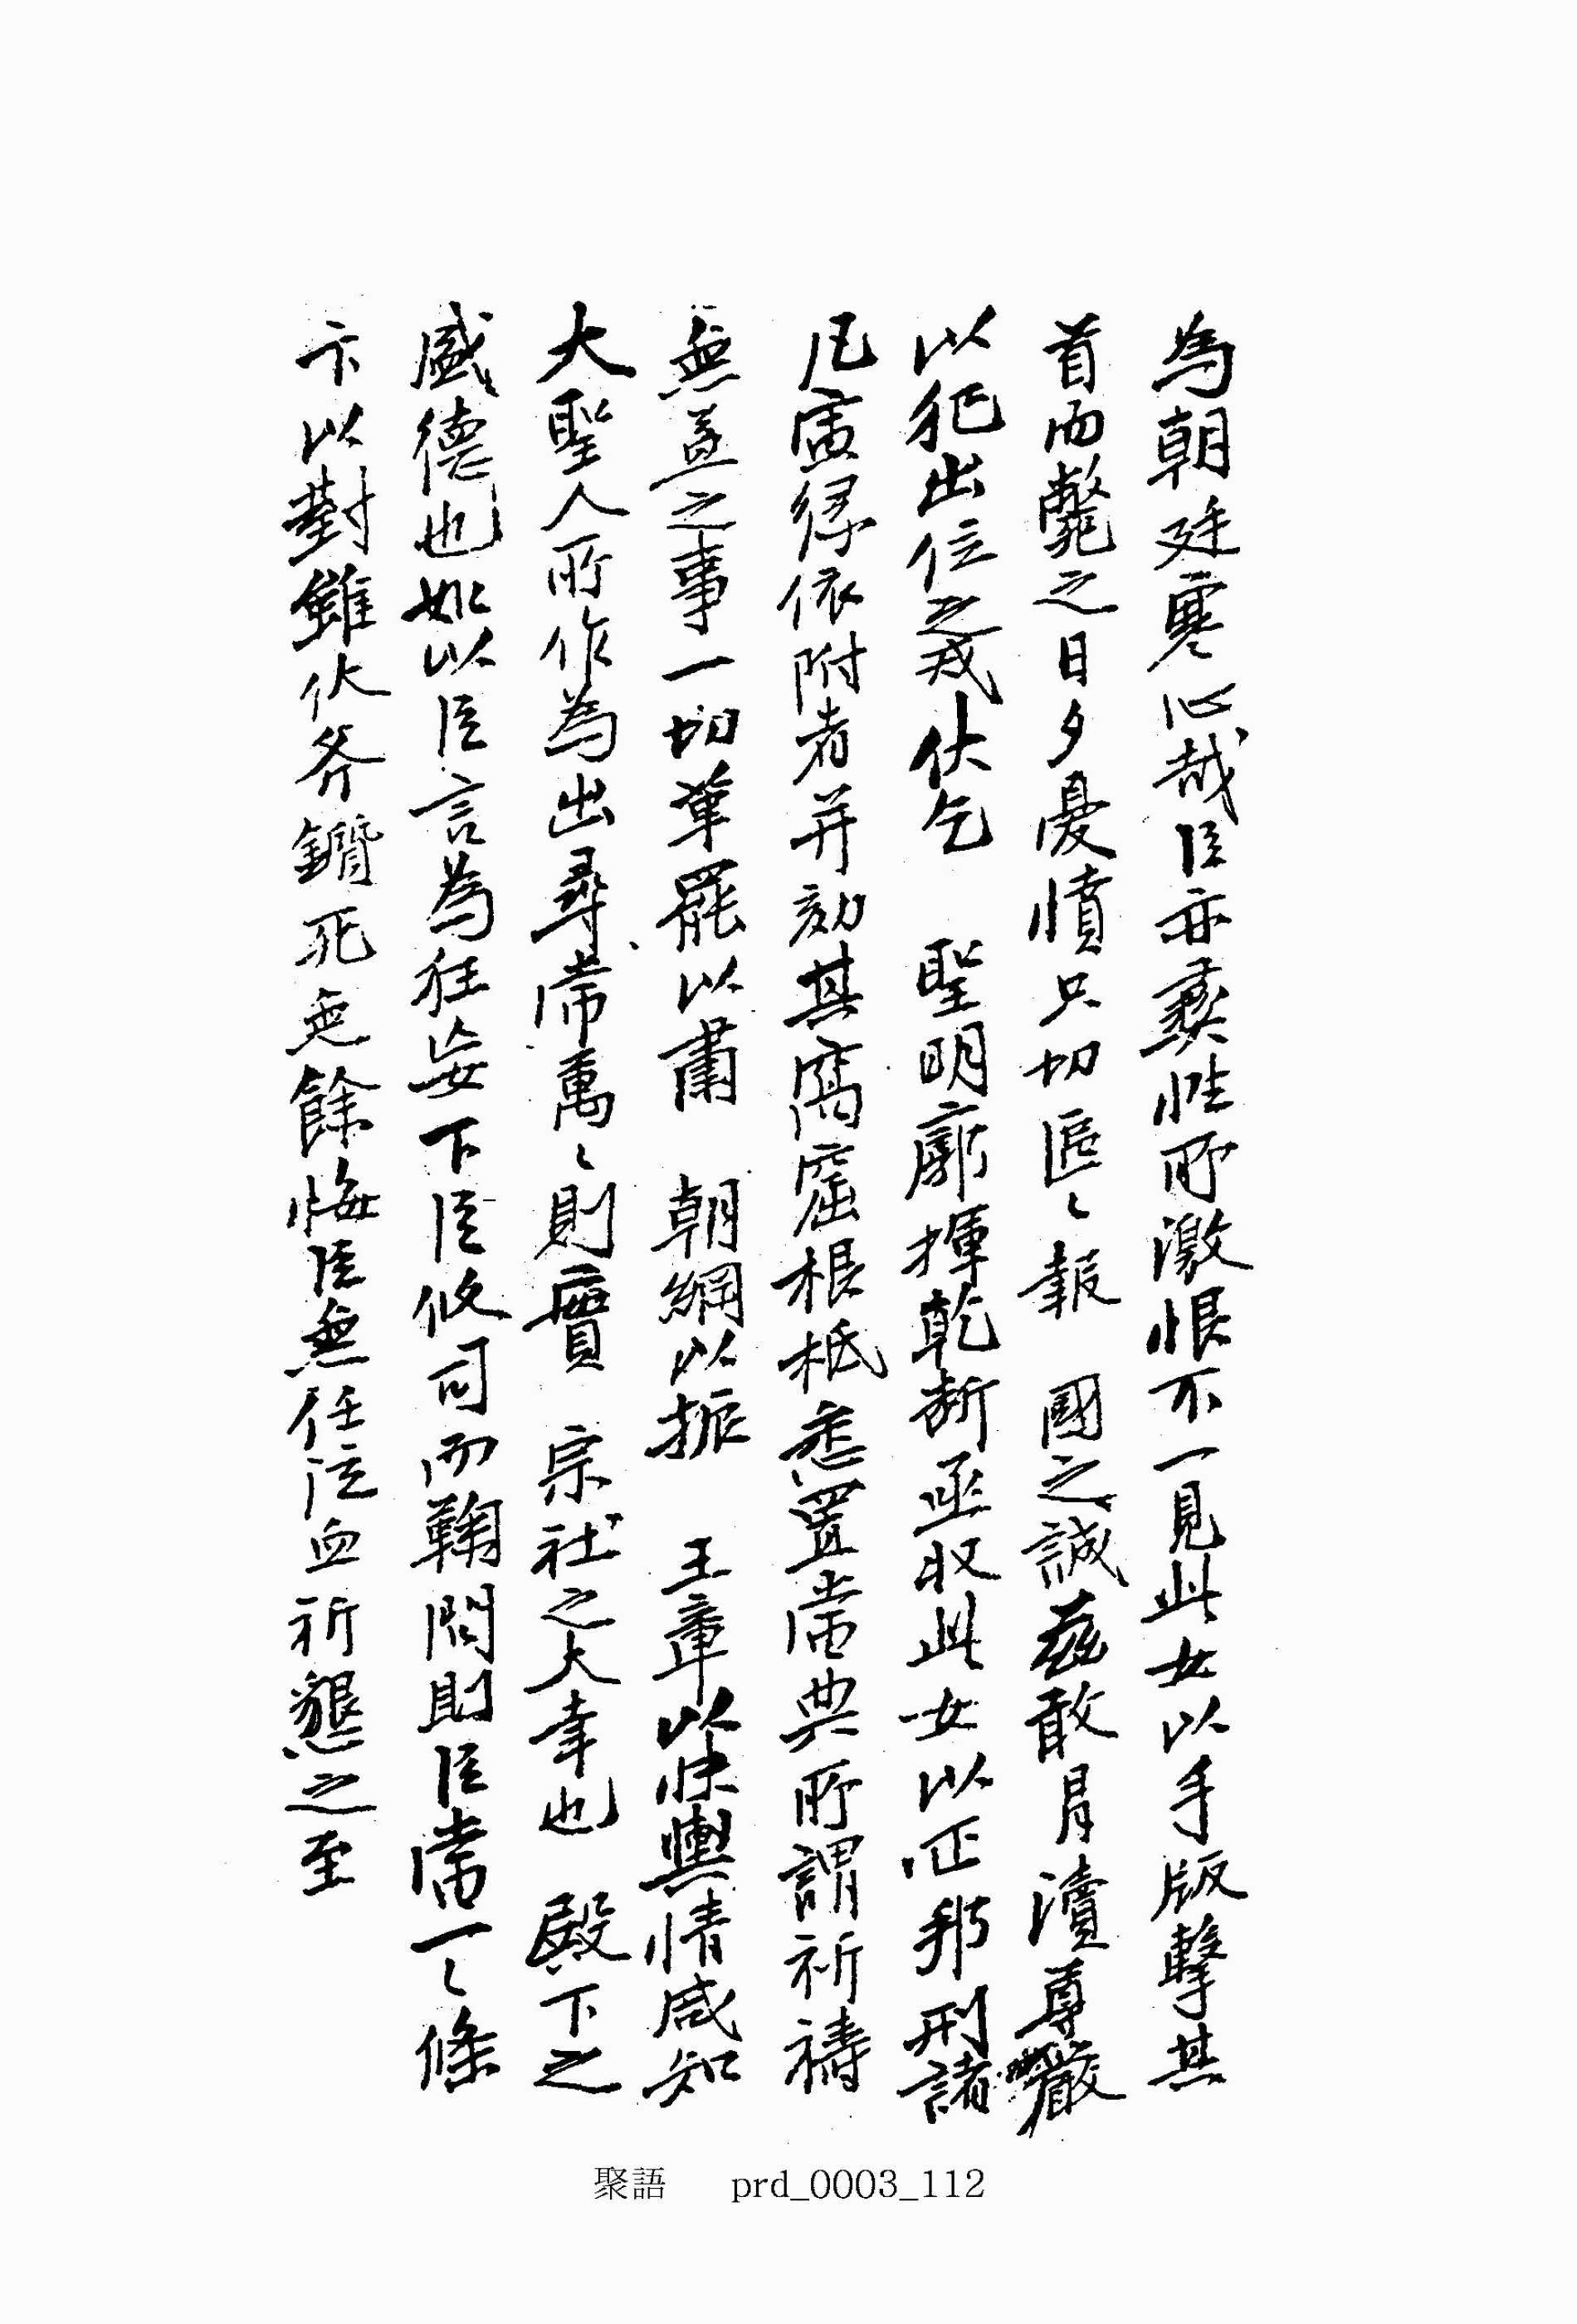 為朝廷寒心哉臣亦彛性所激恨不一見此女以手版擊其
首而斃之日夕憂憤只切區〻報 國之誠玆敢冐瀆尊嚴
以犯出位之戎伏乞 聖明廓揮乾斷亟収此女以正邦刑諸
凡夤緣依附者并劾其窩窟根柢悉置當典所謂祈禱
無益之事一切革罷以肅 朝綱以振 王章以快輿情咸知
大聖人所作為出尋常萬〻則實 宗社之大幸也 殿下之
盛德也如以臣言為狂妄下臣攸司而鞠問則臣當一〻條
卞以對雖伏斧鑕死無餘悔臣無任泣血祈懇之至
聚語 prd_0003_112